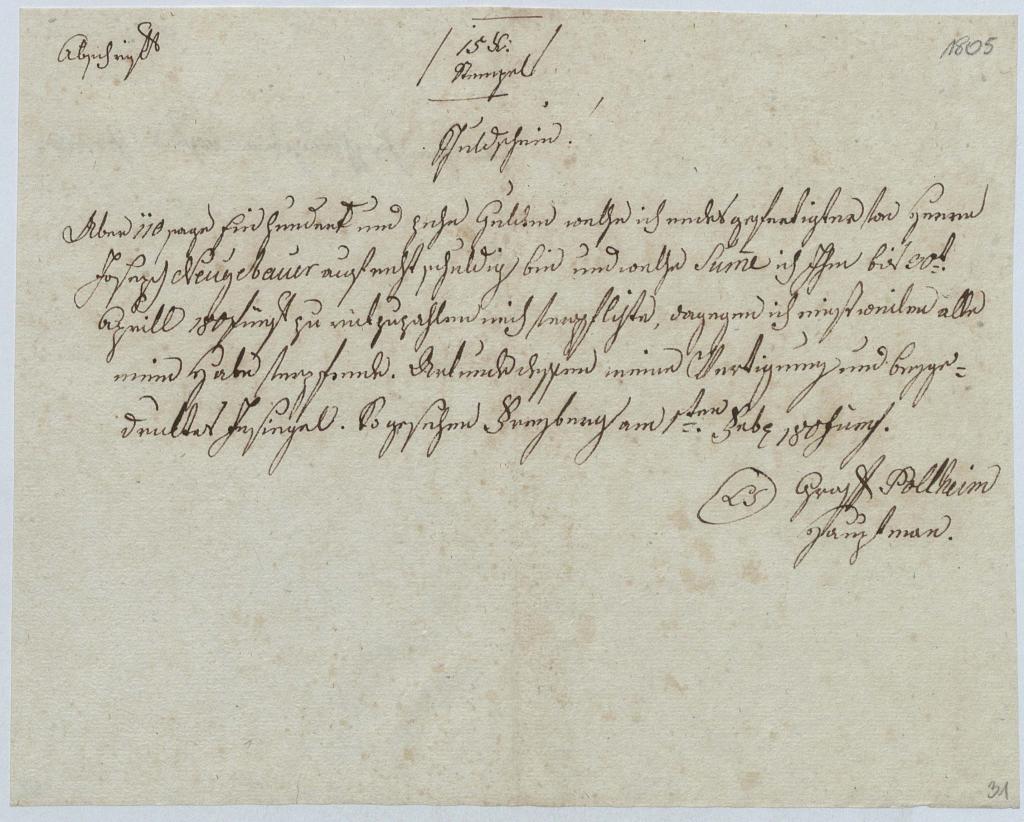 Abschrift
1805
15 Xr:
Stempel
Schuldschein.
Über 110 sage Ein hundert und zehn Gulden welche ich endesgefertigter von Herrn
Joseph Neugebauer aufrecht schuldig bin und welche Suṁe ich Ihm bis 30t.
Aprill 180fünf zu rückzuzahlen mich verpflichte, dagegen ich einstweilen alle
meine Habe verpfände. Urkunde dessen meine Fertigung und beyge=
drucktes Insiegel. So geschehen am 1ten Feb 180fünf.
LS Graff Pollheim
Hauptman.
31